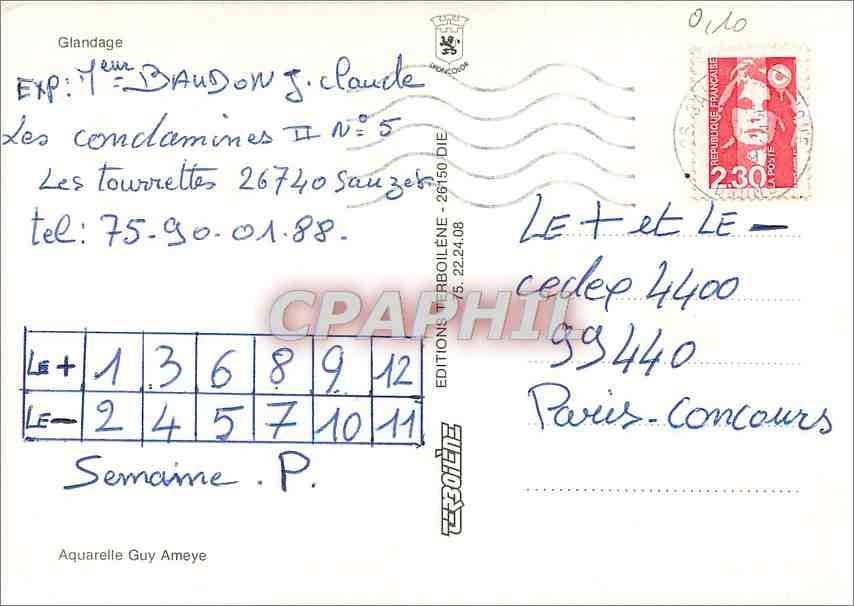 Glandage
EXP: Meur BAUDON J. Claude
Les condamines II N° 5
Les tourrettes 26740 Sauzet
tel: 75-90-01-88.
LE + 1 3 6 8 9 12
LE - 2 4 5 7 10 11
Semaine . P.
Aquarelle Guy Ameye
LYONCOLOR
EDITIONS TERBOILÈNE - 26150 DIE
75. 22.24.08
CPAPHIL
0,10
REPUBLIQUE FRANÇAISE
2.30
LA POSTE
LE + et LE -
cedex 4400
99440
Paris-Concours